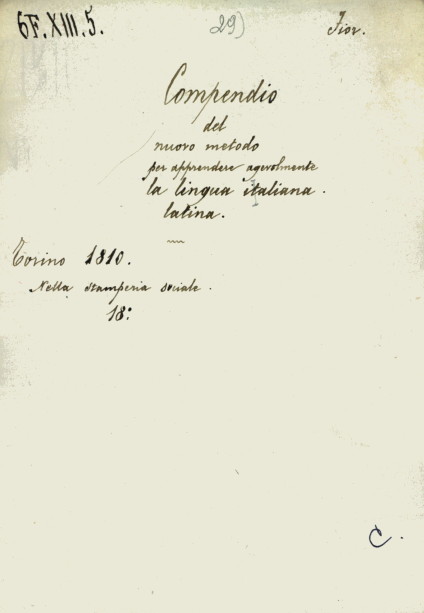 6F.XIII.5.
29)
Fior.
Compendio
del
nuovo metodo
per apprendere agevolmente
la lingua italiana.
latina.
Torino 1810.
Nella stamperia sociale.
18°
C.